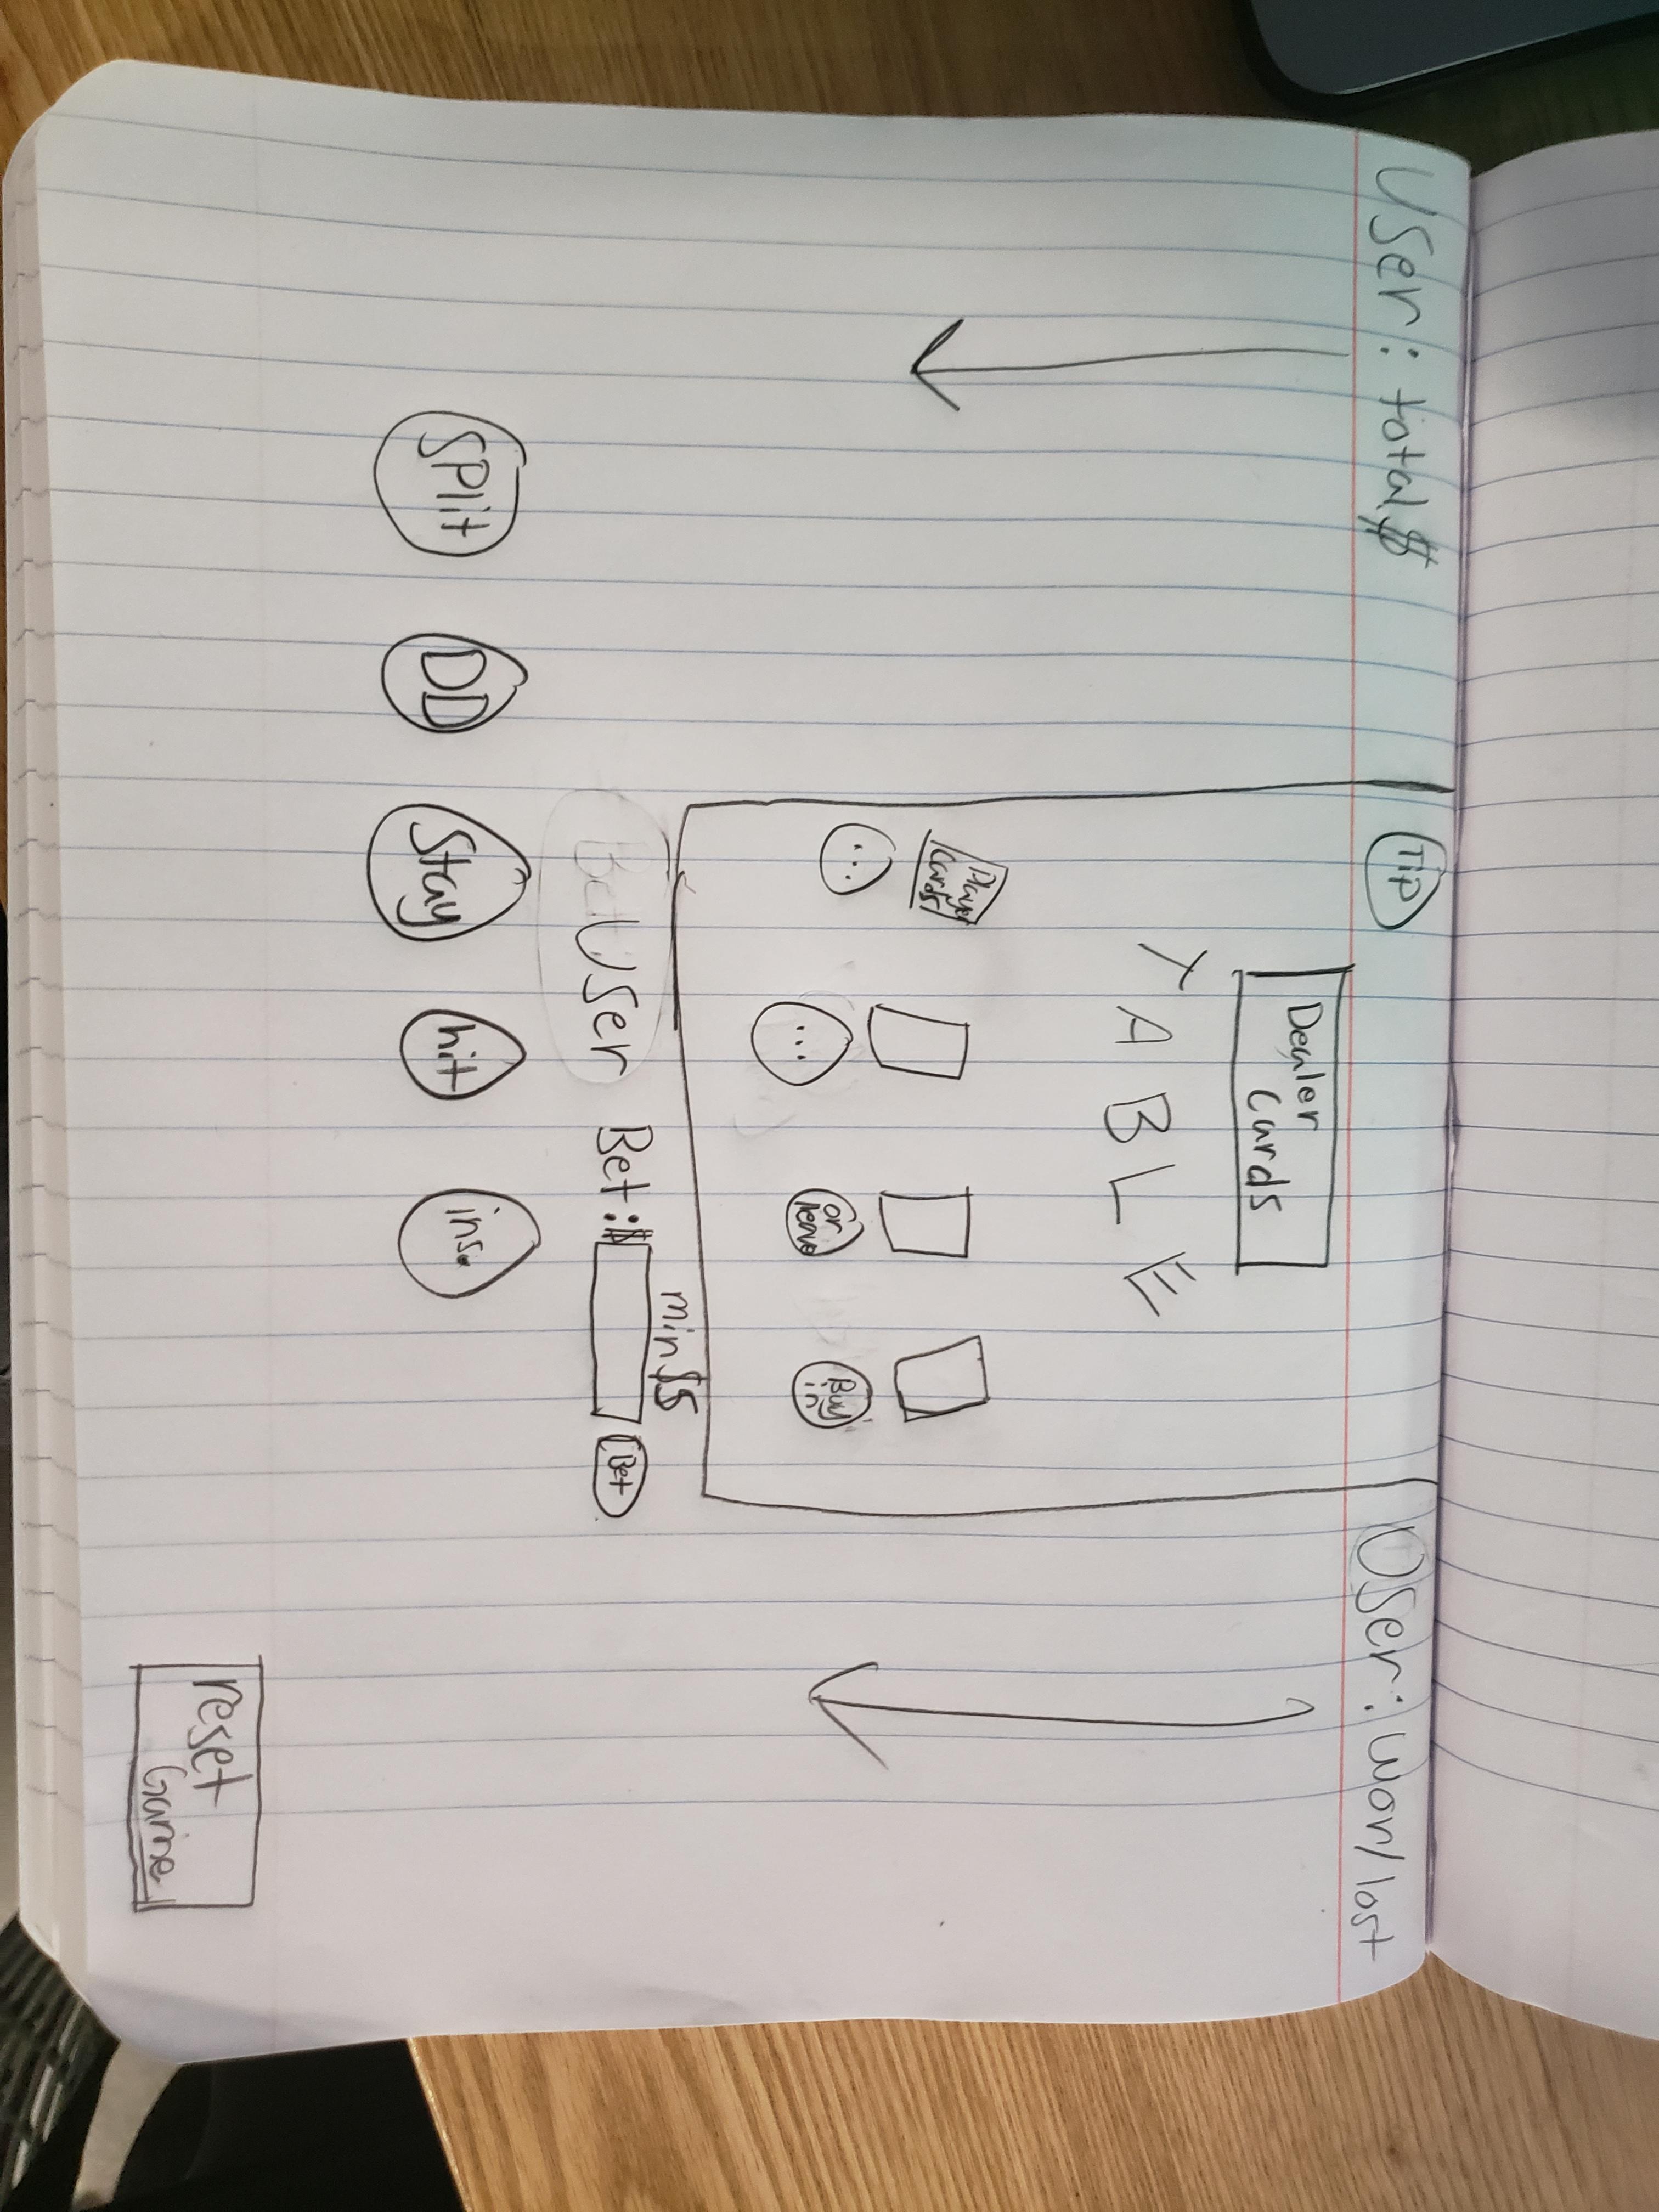 User: total $
Tip
User: won/lost
Dealer
Cards
TABLE
Player
Cards
or
leave
Buy
in
min $5
User Bet: $
Bet
Split
DD
Stay
hit
ins.
reset
Game